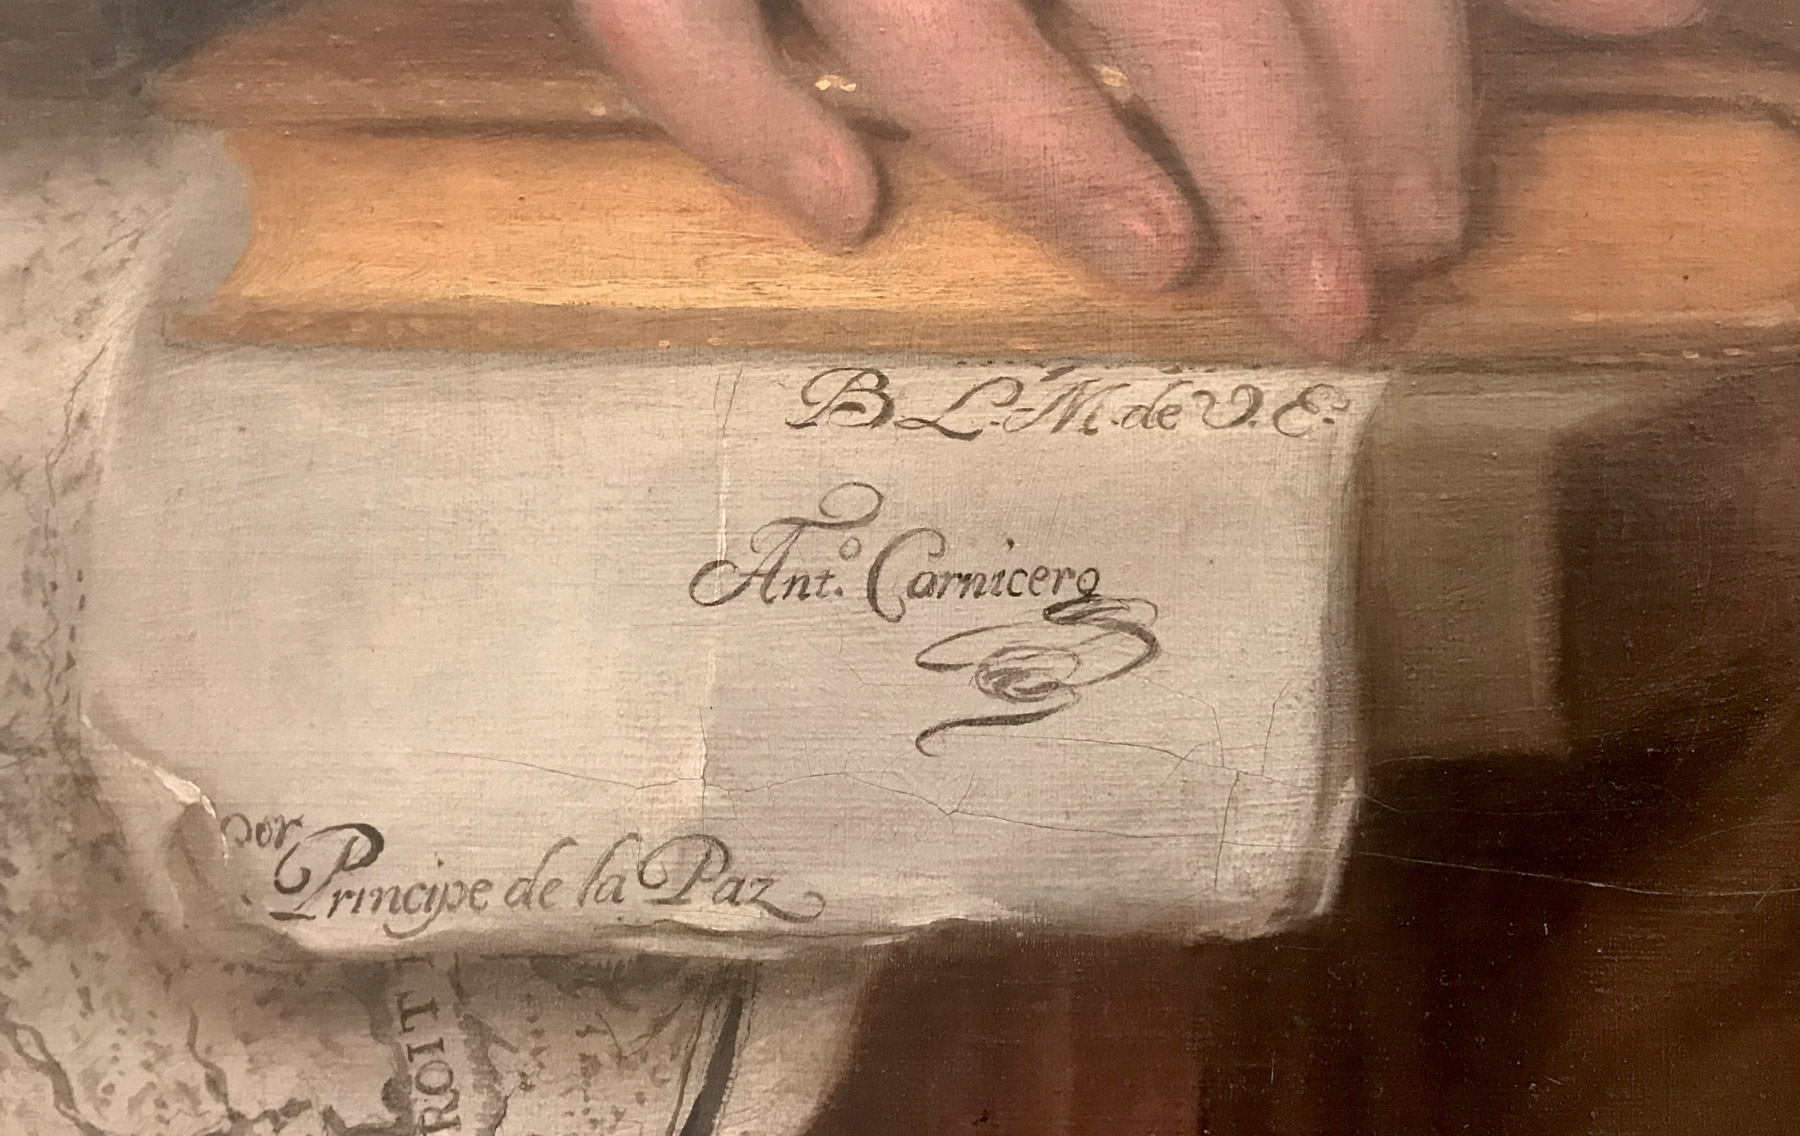 B L. M. de V. E.
Ant.º Carnicero
por
Principe de la Paz
ROIT